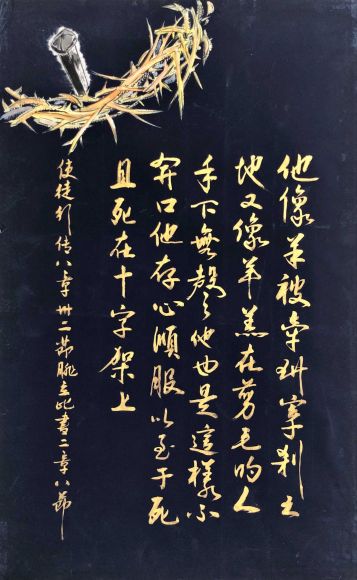 他像羊被牵到宰刹之
地又像羊羔在剪毛的人
手下無聲他也是這樣不
开口他存心順服以至于死
且死在十字架上
使徒行传八章卅二節腓立比書二章八節